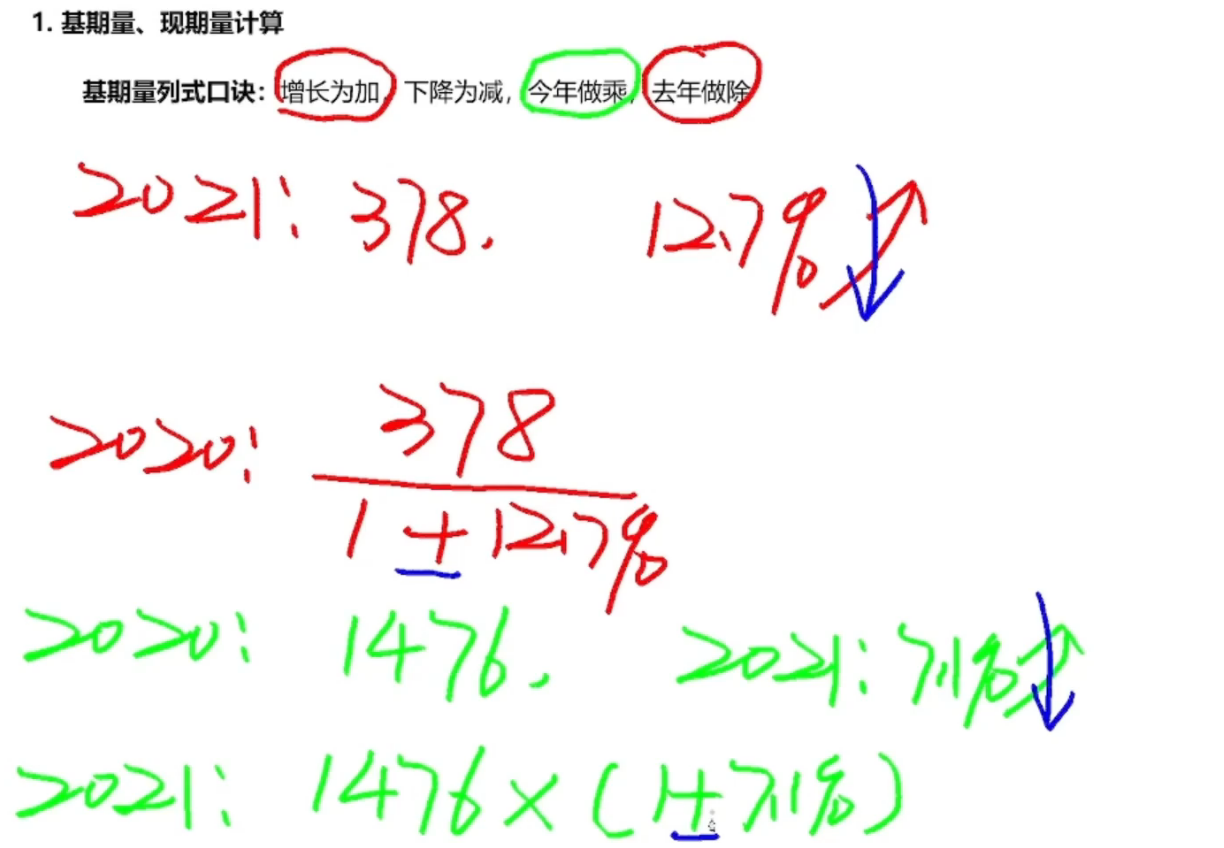 1. 基期量、现期量计算
基期量列式口诀：增长为加，下降为减，今年做乘，去年做除
2021: 378. 12.7%
2020: 378
1+12.7%
2020: 1476. 2021: 7.1%
2021: 1476×(1+7.1%)